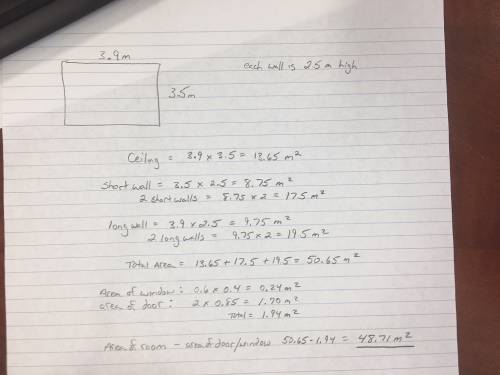 3.9m
each wall is 2.5 m high
3.5m
Ceiling = 3.9 x 3.5 = 13.65 m²
Short wall = 3.5 x 2.5 = 8.75 m²
2 short walls = 8.75 x 2 = 17.5 m²
long wall = 3.9 x 2.5 = 9.75 m²
2 long walls = 9.75 x 2 = 19.5 m²
Total Area = 13.65 + 17.5 + 19.5 = 50.65 m²
Area of window : 0.6 x 0.4 = 0.24 m²
area of door : 2 x 0.85 = 1.70 m²
Total = 1.94 m²
Area of room - area of door/window 50.65 - 1.94 = 48.71 m²